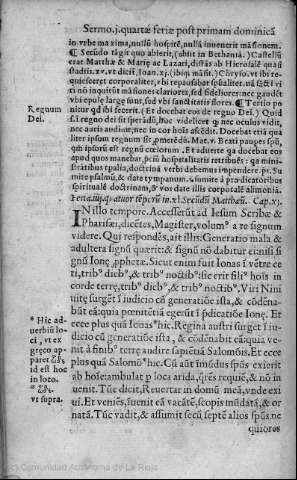 Sermo.j.quartæ feriæ post primam dominicã
in vrbe ma xima, nullũ hospitẽ, nullã inuenerit mãsionem.
¶ Secũdo tãgit quo abierit, (abijt in Bethaniã.) Castellũ
erat Marthæ & Mariæ ac Lazari, distãs ab Hierosalẽ quasi
stadijs.xv. vt dicit, Ioan.xj. (ibiq; mãsit.) Chryso. vt ibi re-
quiesceret corporaliter, vbi repausabat spũaliter. nã sãcti vi
ri nõ inquirũt mãsiones clariores, sed fideliores: nec gaudẽt
vbi epulę large sunt, sed vbi sanctitatis flores. ¶ Tertio po
nitur qd ibi fecerit. (Et docebat eos de regno Dei.) Quid
sit regno dei sit sperãdũ, hoc videlicet q̃ nec oculus vidit,
nec auris audiuit, nec in cor hoĩs ascẽdit. Docebat etiã qua
liter ipsum regnum sit p̃merẽdũ. Mat.v. Beati pauperes spũ,
qm̃ ipsorũ est regnũ cœlorum. Et aduerte qd docebat eos
apud quos manebat, p̃ciũ hospitalitatis retribuẽs: qa mini-
strãtibus tpalia, doctrina verbi debemus impendere. ps. Su
mite psalmũ, & date tympanum. sumite a prædicatoribus
spiritualẽ doctrinam, & vos date illis corporalẽ alimoniã.
Regnum
Dei.
Feria.iiij.quatuor tẽporũ in.xl. Secũdũ Matthæũ. Cap.xj.
IN illo tempore. Accesserũt ad Iesum Scribæ &
Pharisæi, dicẽtes, Magister, volumᵒ a te signum
videre. Qui respõdẽs, ait illis: Generatio mala &
adultera signũ quærit: & signũ nõ dabitur ei nisi si
gnũ Ionę, p̃phetæ. Sicut enim fuit Ionas ĩ vẽtre ce
ti, tribᵒ diebᵒ, & tribᵒ noctibᵒ: sic erit filiᵒ hoĩs in
corde terrę, tribᵒ diebᵒ, & tribᵒ noctibᵒ. Viri Nini
uitę surgẽt ĩ iudicio cũ generatiõe ista, & cõdẽna-
bũt eã: quia pœnitẽtiã egerũt ĩ p̃dicatiõe Ionę. Et
ecce plus quã Ionas *hic. Regina austri surget ĩ iu-
dicio cũ generatiõe ista, & cõdẽnabit eã: quia ve-
nit à finibᵒ terrę audire sapiẽtiã Salomõis. Et ecce
plus quã Salomõ *hic. Cũ aũt ĩmũdus spũs exierit
ab hoĩe: ambulat p loca arida, q̃rẽs requiẽ, & nõ in
uenit. Tũc dicit, Reuertar in domũ meã, vnde exi
ui. Et veniẽs, inuenit eã vacãtẽ, scopis mũdatã, & or
natã. Tũc vadit, & assumit secũ septẽ alios spũs ne
quiores
* Hic ad-
uerbiũ lo
ci, vt ex
gręco ap-
paret ὧδε
id est hoc
in loco.
* ὧδε,
vt supra.
(c) Comunidad Autónoma de La Rioja